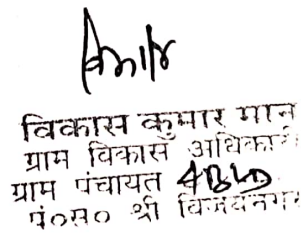 विकास कुमार मान
ग्राम विकास अधिकारी
ग्राम पंचायत 4BLD
पं०स० श्री विजयनगर